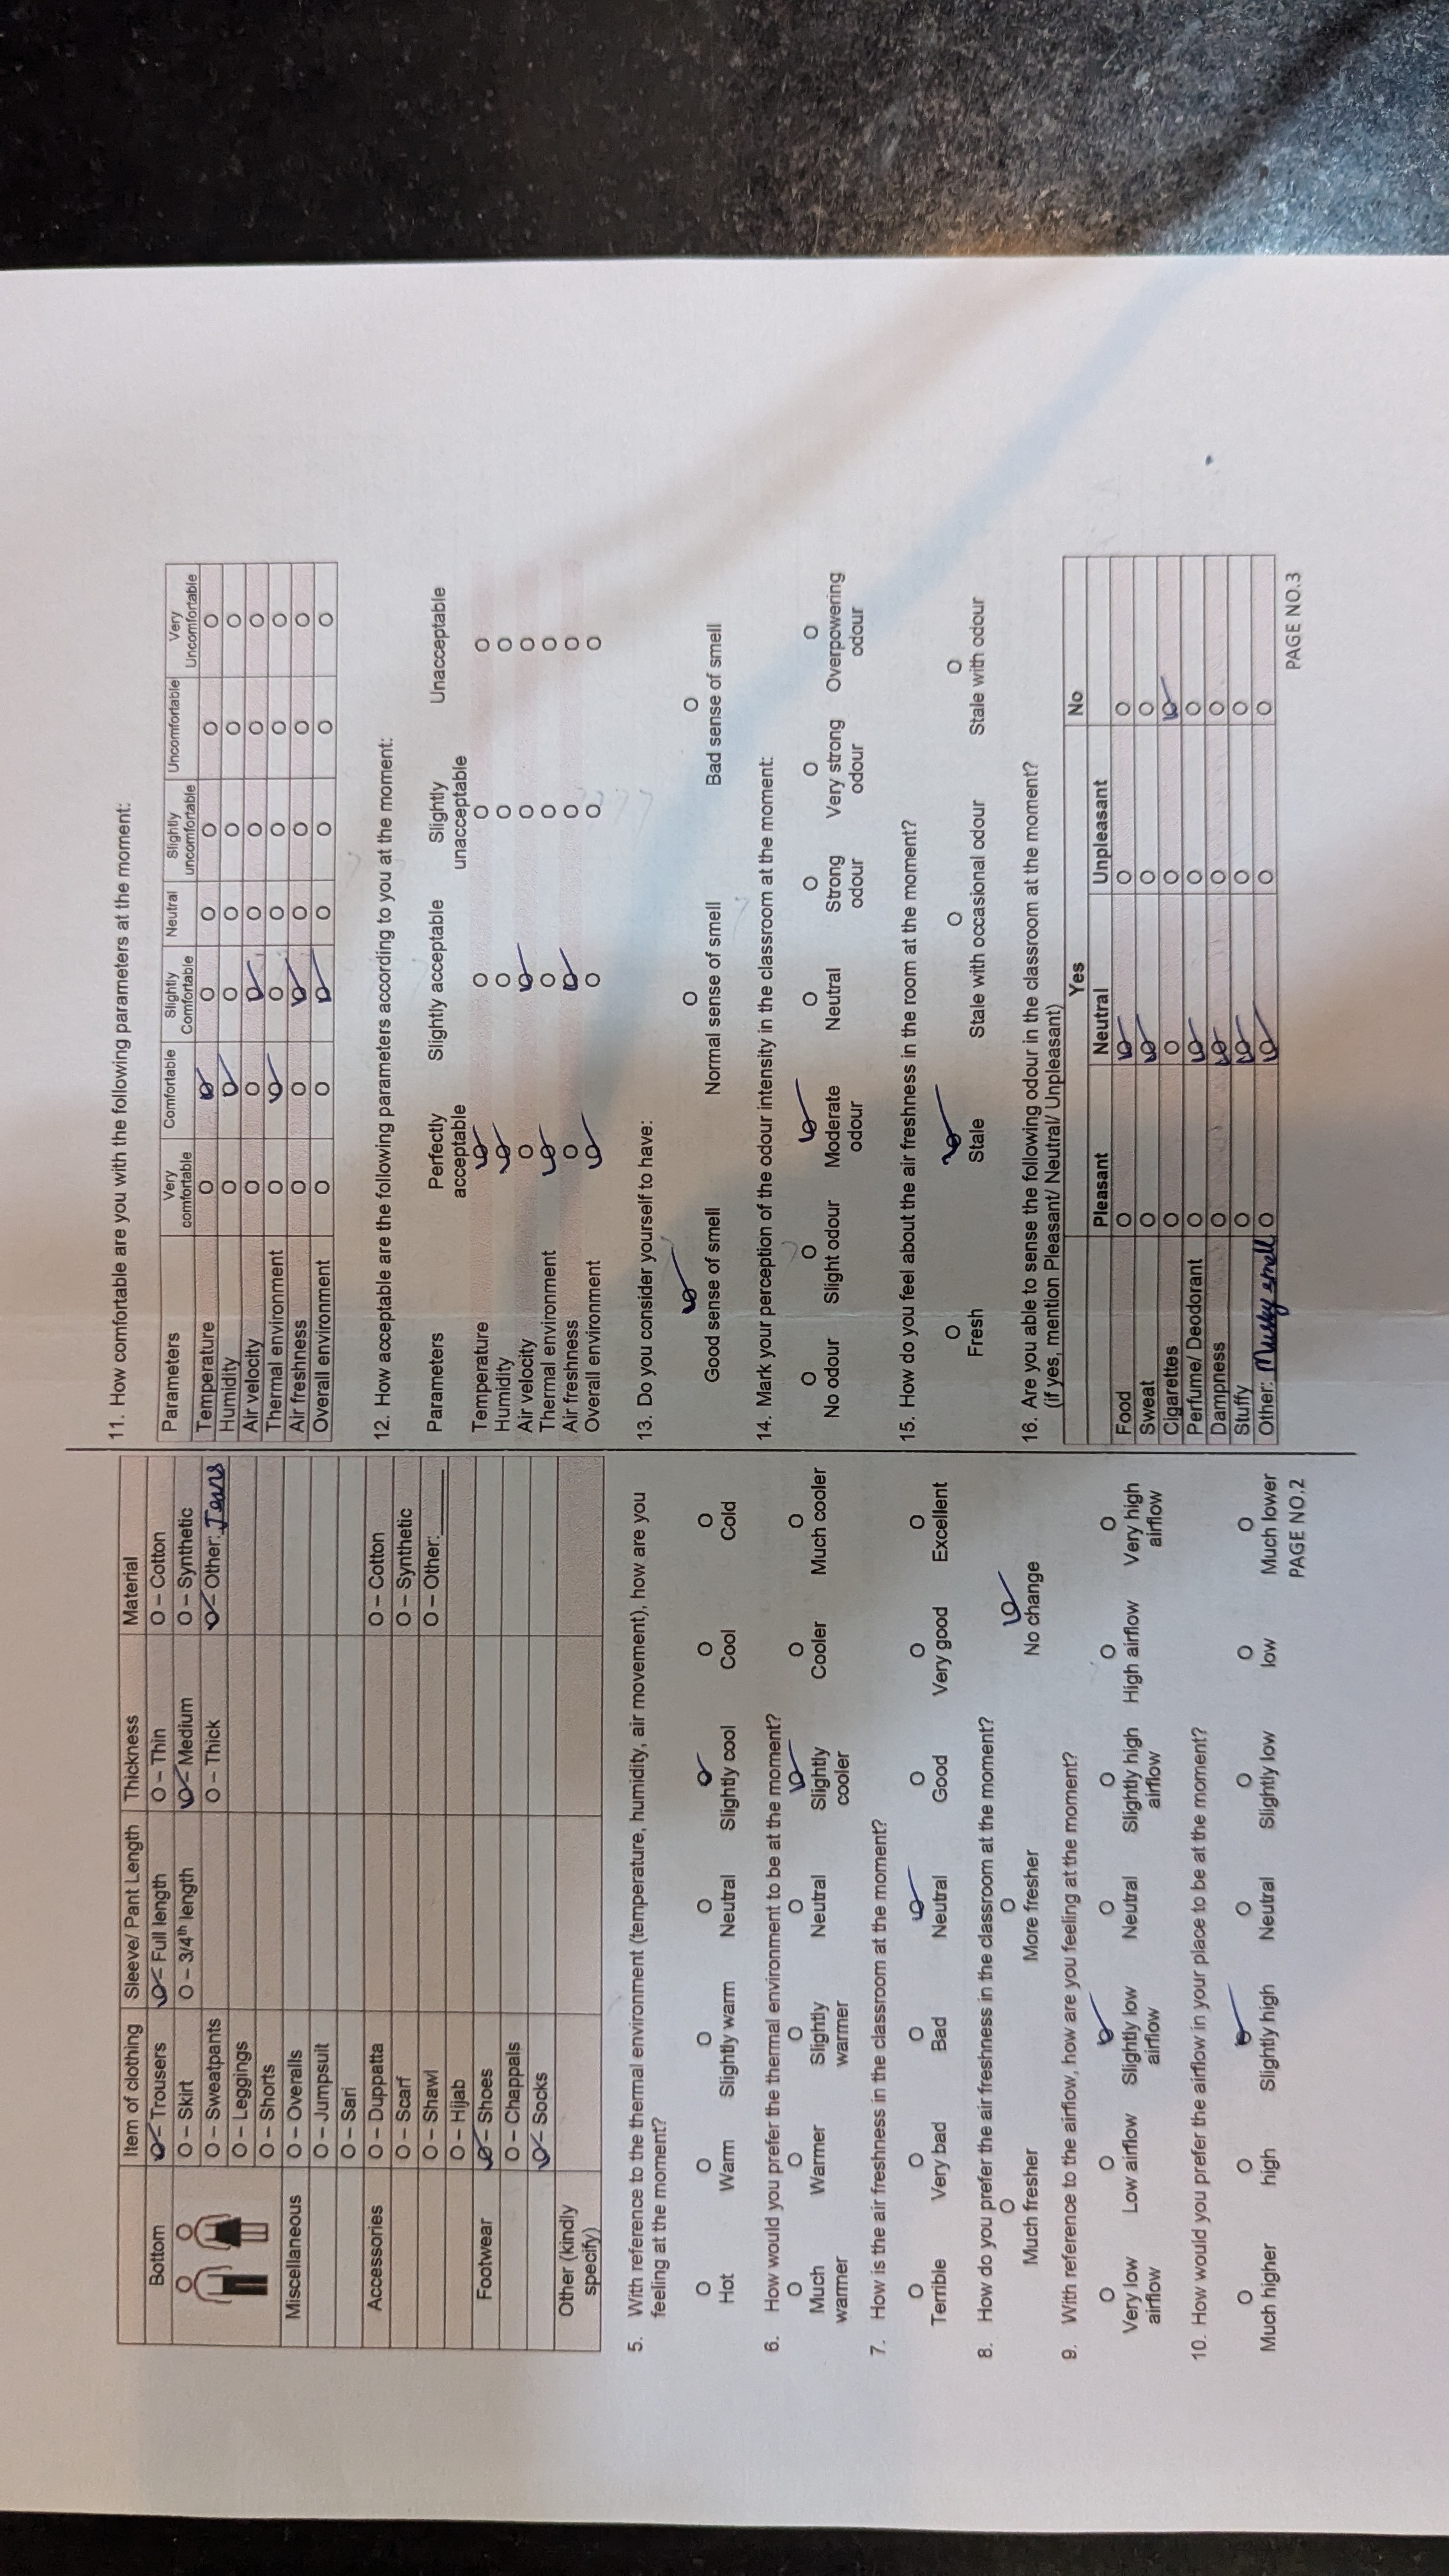 Item of clothing Sleeve/ Pant Length Thickness Material
Bottom O – Trousers O – Full length O – Thin O – Cotton
O – Skirt O – 3/4th length O – Medium O – Synthetic
O – Sweatpants O – Thick O – Other: Jeans
O – Leggings
O – Shorts
Miscellaneous O – Overalls
O – Jumpsuit
O – Sari
Accessories O – Duppatta O – Cotton
O – Scarf O – Synthetic
O – Shawl O – Other:
O – Hijab
Footwear O – Shoes
O – Chappals
O – Socks
Other (kindly
specify)
5. With reference to the thermal environment (temperature, humidity, air movement), how are you
feeling at the moment?
Hot Warm Slightly warm Neutral Slightly cool Cool Cold
6. How would you prefer the thermal environment to be at the moment?
Much Warmer Slightly Neutral Slightly Cooler Much cooler
warmer warmer cooler
7. How is the air freshness in the classroom at the moment?
Terrible Very bad Bad Neutral Good Very good Excellent
8. How do you prefer the air freshness in the classroom at the moment?
Much fresher More fresher No change
9. With reference to the airflow, how are you feeling at the moment?
Very low Low airflow Slightly low Neutral Slightly high High airflow Very high
airflow airflow airflow airflow
10. How would you prefer the airflow in your place to be at the moment?
Much higher high Slightly high Neutral Slightly low low Much lower
PAGE NO.2
11. How comfortable are you with the following parameters at the moment:
Parameters Very Comfortable Slightly Neutral Slightly Uncomfortable Very
comfortable Comfortable uncomfortable Uncomfortable
Temperature
Humidity
Air velocity
Thermal environment
Air freshness
Overall environment
12. How acceptable are the following parameters according to you at the moment:
Parameters Perfectly Slightly acceptable Slightly Unacceptable
acceptable unacceptable
Temperature
Humidity
Air velocity
Thermal environment
Air freshness
Overall environment
13. Do you consider yourself to have:
Good sense of smell Normal sense of smell Bad sense of smell
14. Mark your perception of the odour intensity in the classroom at the moment:
No odour Slight odour Moderate Neutral Strong Very strong Overpowering
odour odour odour odour
15. How do you feel about the air freshness in the room at the moment?
Fresh Stale Stale with occasional odour Stale with odour
16. Are you able to sense the following odour in the classroom at the moment?
(if yes, mention Pleasant/ Neutral/ Unpleasant)
Yes No
Pleasant Neutral Unpleasant
Food
Sweat
Cigarettes
Perfume/ Deodorant
Dampness
Stuffy
Other: smell
PAGE NO.3